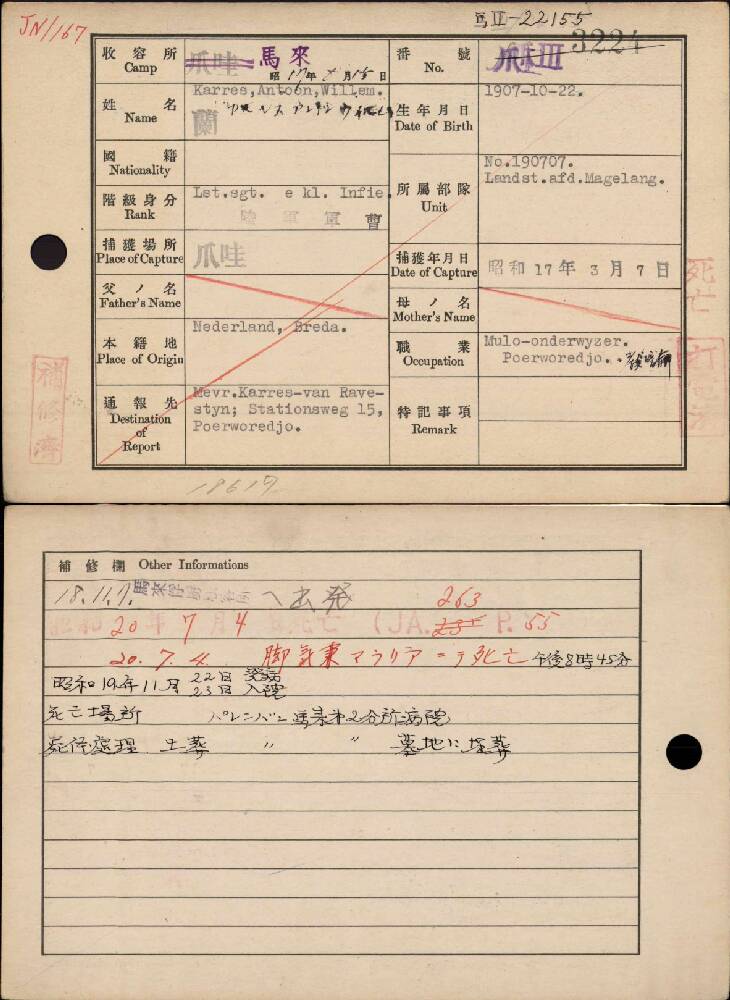 JN/167
馬II-22155
収容所
Camp
爪哇 馬來
昭17年 月15日
番號
No.
爪III 3224
姓名
Name
Karres,Antoon,Willem.
蘭
生年月日
Date of Birth
1907-10-22.
國籍
Nationality
所属部隊
Unit
No.190707.
Landst.afd.Magelang.
階級身分
Rank
Lst.sgt. e kl. Infie.
陸軍軍曹
捕獲場所
Place of Capture
爪哇
捕獲年月日
Date of Capture
昭和17年3月7日
父ノ名
Father's Name
母ノ名
Mother's Name
本籍地
Place of Origin
Nederland, Breda.
職業
Occupation
Mulo-onderwyzer.
Poerworedjo.
通報先
Destination
of
Report
Mevr.Karres-van Rave-
styn; Stationsweg 15,
Poerworedjo.
特記事項
Remark
死亡
補修濟
18617
補修欄 Other Informations
18.11.7. 馬來俘虜収容所ヘ出発
263
昭和20年7月4日死亡 (JA. P.55
20.7.4. 脚気兼マラリアニテ死亡 午後8時45分
昭和19年11月 22日 発病
23日 入院
死亡場所 パレンバン 第2分所病院
死体處理 土葬 〃 〃 墓地に埋葬